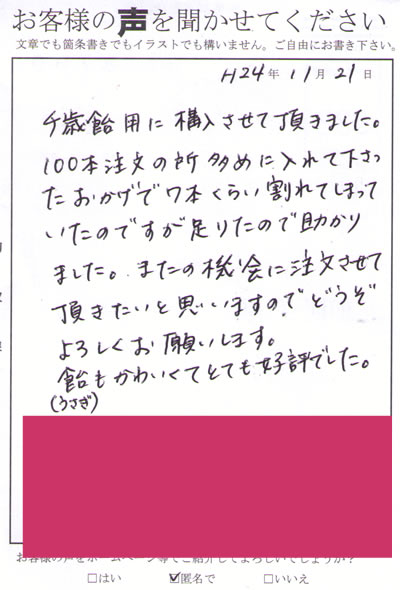 お客様の声を聞かせてください
文章でも箇条書きでもイラストでも構いません。ご自由にお書き下さい。
H24年11月21日
千歳飴用に構入させて頂きました。
100本注文の所多めに入れて下さっ
たおかげで7本くらい割れてしまって
いたのですが足りたので助かり
ました。またの機会に注文させて
頂きたいと思いますので、どうぞ
よろしくお願いします。
飴もかわいくてとても好評でした。
(うさぎ)
お客様の声をホームページ等でご紹介してよろしいでしょうか？
□はい ☑匿名で □いいえ